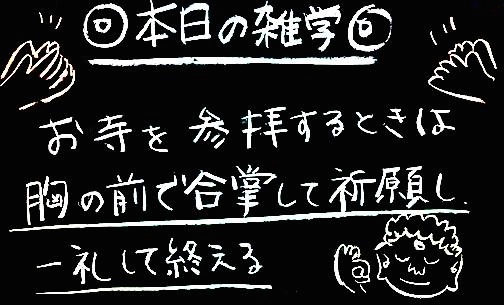 ◎本日の雑学◎
お寺を参拝するときは
胸の前で合掌して祈願し、
一礼して終える